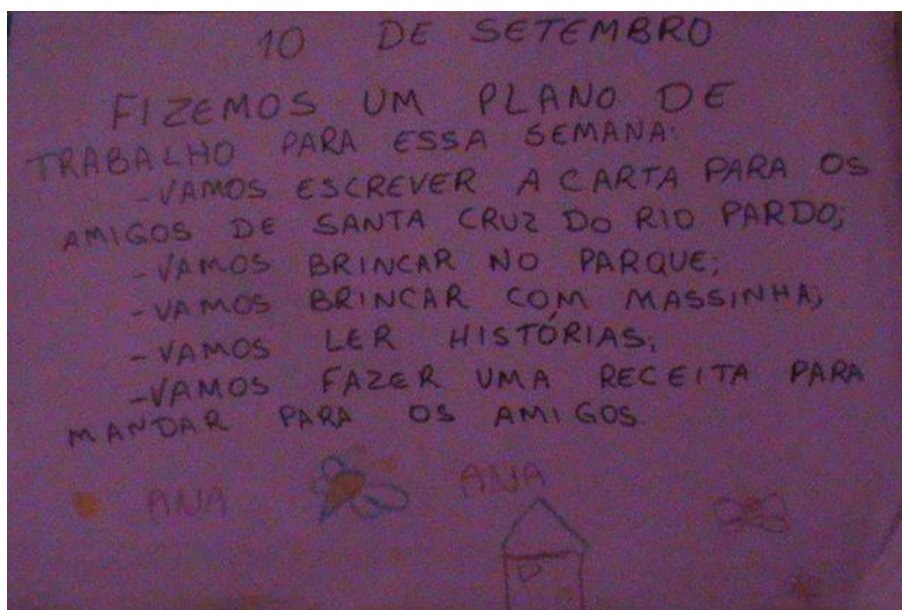 10 DE SETEMBRO
FIZEMOS UM PLANO DE
TRABALHO PARA ESSA SEMANA:
-VAMOS ESCREVER A CARTA PARA OS
AMIGOS DE SANTA CRUZ DO RIO PARDO;
-VAMOS BRINCAR NO PARQUE;
-VAMOS BRINCAR COM MASSINHA;
-VAMOS LER HISTÓRIAS;
-VAMOS FAZER UMA RECEITA PARA
MANDAR PARA OS AMIGOS.
ANA ANA